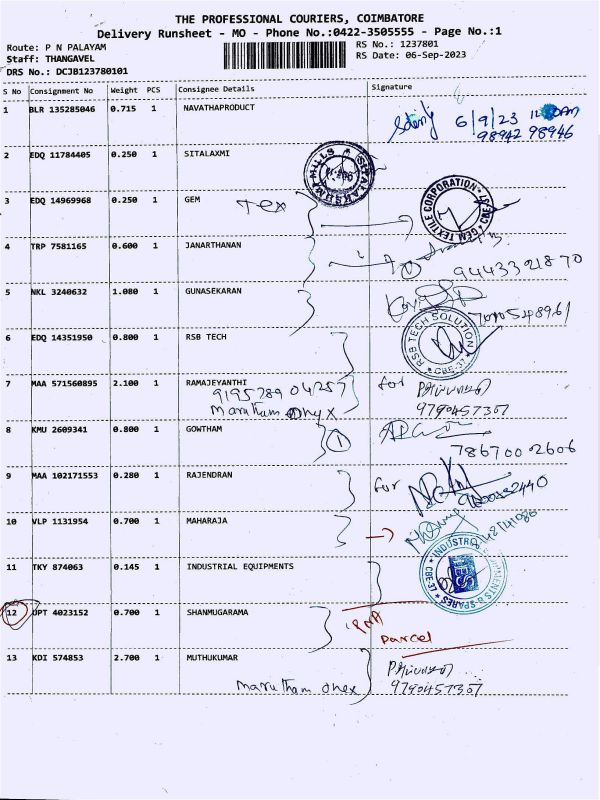 THE PROFESSIONAL COURIERS, COIMBATORE
Delivery Runsheet - MO - Phone No.:0422-3505555 - Page No.:1
Route: P N PALAYAM
RS No.: 1237801
Staff: THANGAVEL
RS Date: 06-Sep-2023
DRS No.: DCJB123780101
S No Consignment No Weight PCS Consignee Details Signature
1 BLR 135285046 0.715 1 NAVATHAPRODUCT
6/9/23
98942 98946
2 EDQ 11784405 0.250 1 SITALAXMI
3 EDQ 14969968 0.250 1 GEM
Tex
GEM TEXTILE CORPORATION * CBE-37 *
4 TRP 7581165 0.600 1 JANARTHANAN
9443321870
5 NKL 3240632 1.080 1 GUNASEKARAN
6 EDQ 14351950 0.800 1 RSB TECH
RSB TECH SOLUTION * CBE-37 *
7 MAA 571560895 2.100 1 RAMAJEYANTHI
for
919578904257
Marutham Onyx
9790457307
8 KMU 2609341 0.800 1 GOWTHAM
1
7867002606
9 MAA 102171553 0.280 1 RAJENDRAN
for
10 VLP 1131954 0.700 1 MAHARAJA
11 TKY 874063 0.145 1 INDUSTRIAL EQUIPMENTS
12 UPT 4023152 0.700 1 SHANMUGARAMA
parcel
13 KDI 574853 2.700 1 MUTHUKUMAR
Marutham onex
9790457307